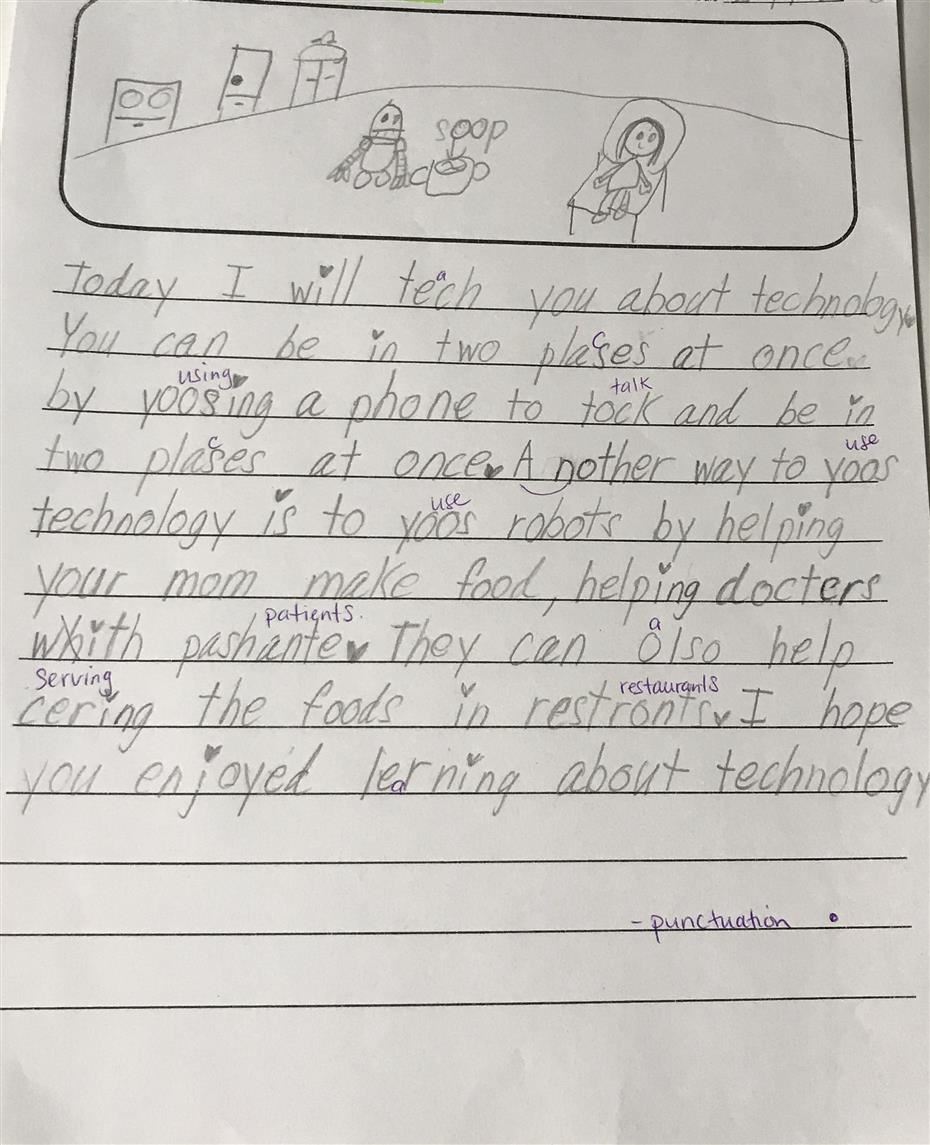 soop
Today I will teach you about technology.
You can be in two places at once
using talk
by yoosing a phone to tock and be in
use
two places at once. A nother way to yoos
use
technology is to yoos robots by helping
your mom make food, helping docters
patients. a
whith pashante. They can olso help
serving restaurants
cering the foods in restronts. I hope
you enjoyed learning about technology
- punctuation .